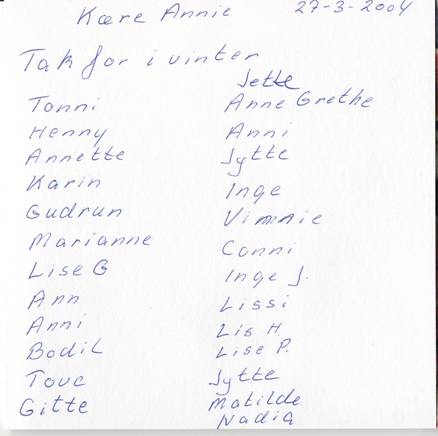 Kære Annie 27-3-2004
Tak for i vinter
Jette
Tonni Anne Grethe
Henny Anni
Annette Jytte
Karin Inge
Gudrun Vinnie
Marianne Conni
Lise G Inge J.
Ann Lissi
Anni Lis H.
Bodil Lise P.
Tove Jytte
Gitte Matilde
Nadia